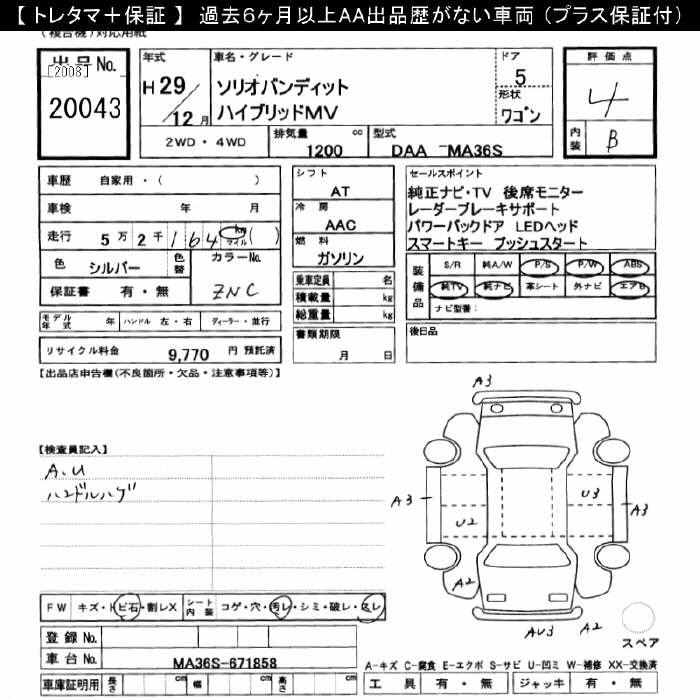 【 トレタマ＋保証 】 過去６ヶ月以上ＡＡ出品歴がない車両（プラス保証付）
(複合機)対応用紙
出品No.
[2008]
20043
年式
H29/12月
車名・グレード
ソリオバンディット
ハイブリッドMV
ドア
5
形状
ワゴン
評価点
4
内装 B
2WD・4WD
排気量 cc
1200
型式
DAA －MA36S
車歴 自家用・( )
車検 年 月
走行 5万2千164km マイル( )
色 シルバー
色替
カラーNo.
ZNC
保証書 有・無
シフト
AT
冷房
AAC
燃料
ガソリン
乗車定員 名
積載量 kg
総重量 kg
セールスポイント
純正ナビ・TV 後席モニター
レーダーブレーキサポート
パワーバックドア LEDヘッド
スマートキー プッシュスタート
装備品
S/R 純A/W P/S P/W ABS
純TV 純ナビ 革シート 外ナビ エアB
ナビ型番：
モデル年式 年 ハンドル 左・右 ディーラー・並行
リサイクル料金 9,770 円 預託済
書類期限
月 日
後日品
【出品店申告欄(不良箇所・欠品・注意事項等)】
【検査員記入】
A.U
ハンドルハゲ
A3
A3
U3
A3
U2
A2
AU3
A2
スペア
FW キズ・トビ石・割レX
シート内装 コゲ・穴・汚レ・シミ・破レ・スレ
登録No.
車台No.
MA36S-671858
車庫証明用 長さ cm 幅 cm 高さ cm
A-キズ C-腐食 E-エクボ S-サビ U-凹ミ W-補修 XX-交換済
工具 有・無 ジャッキ 有・無